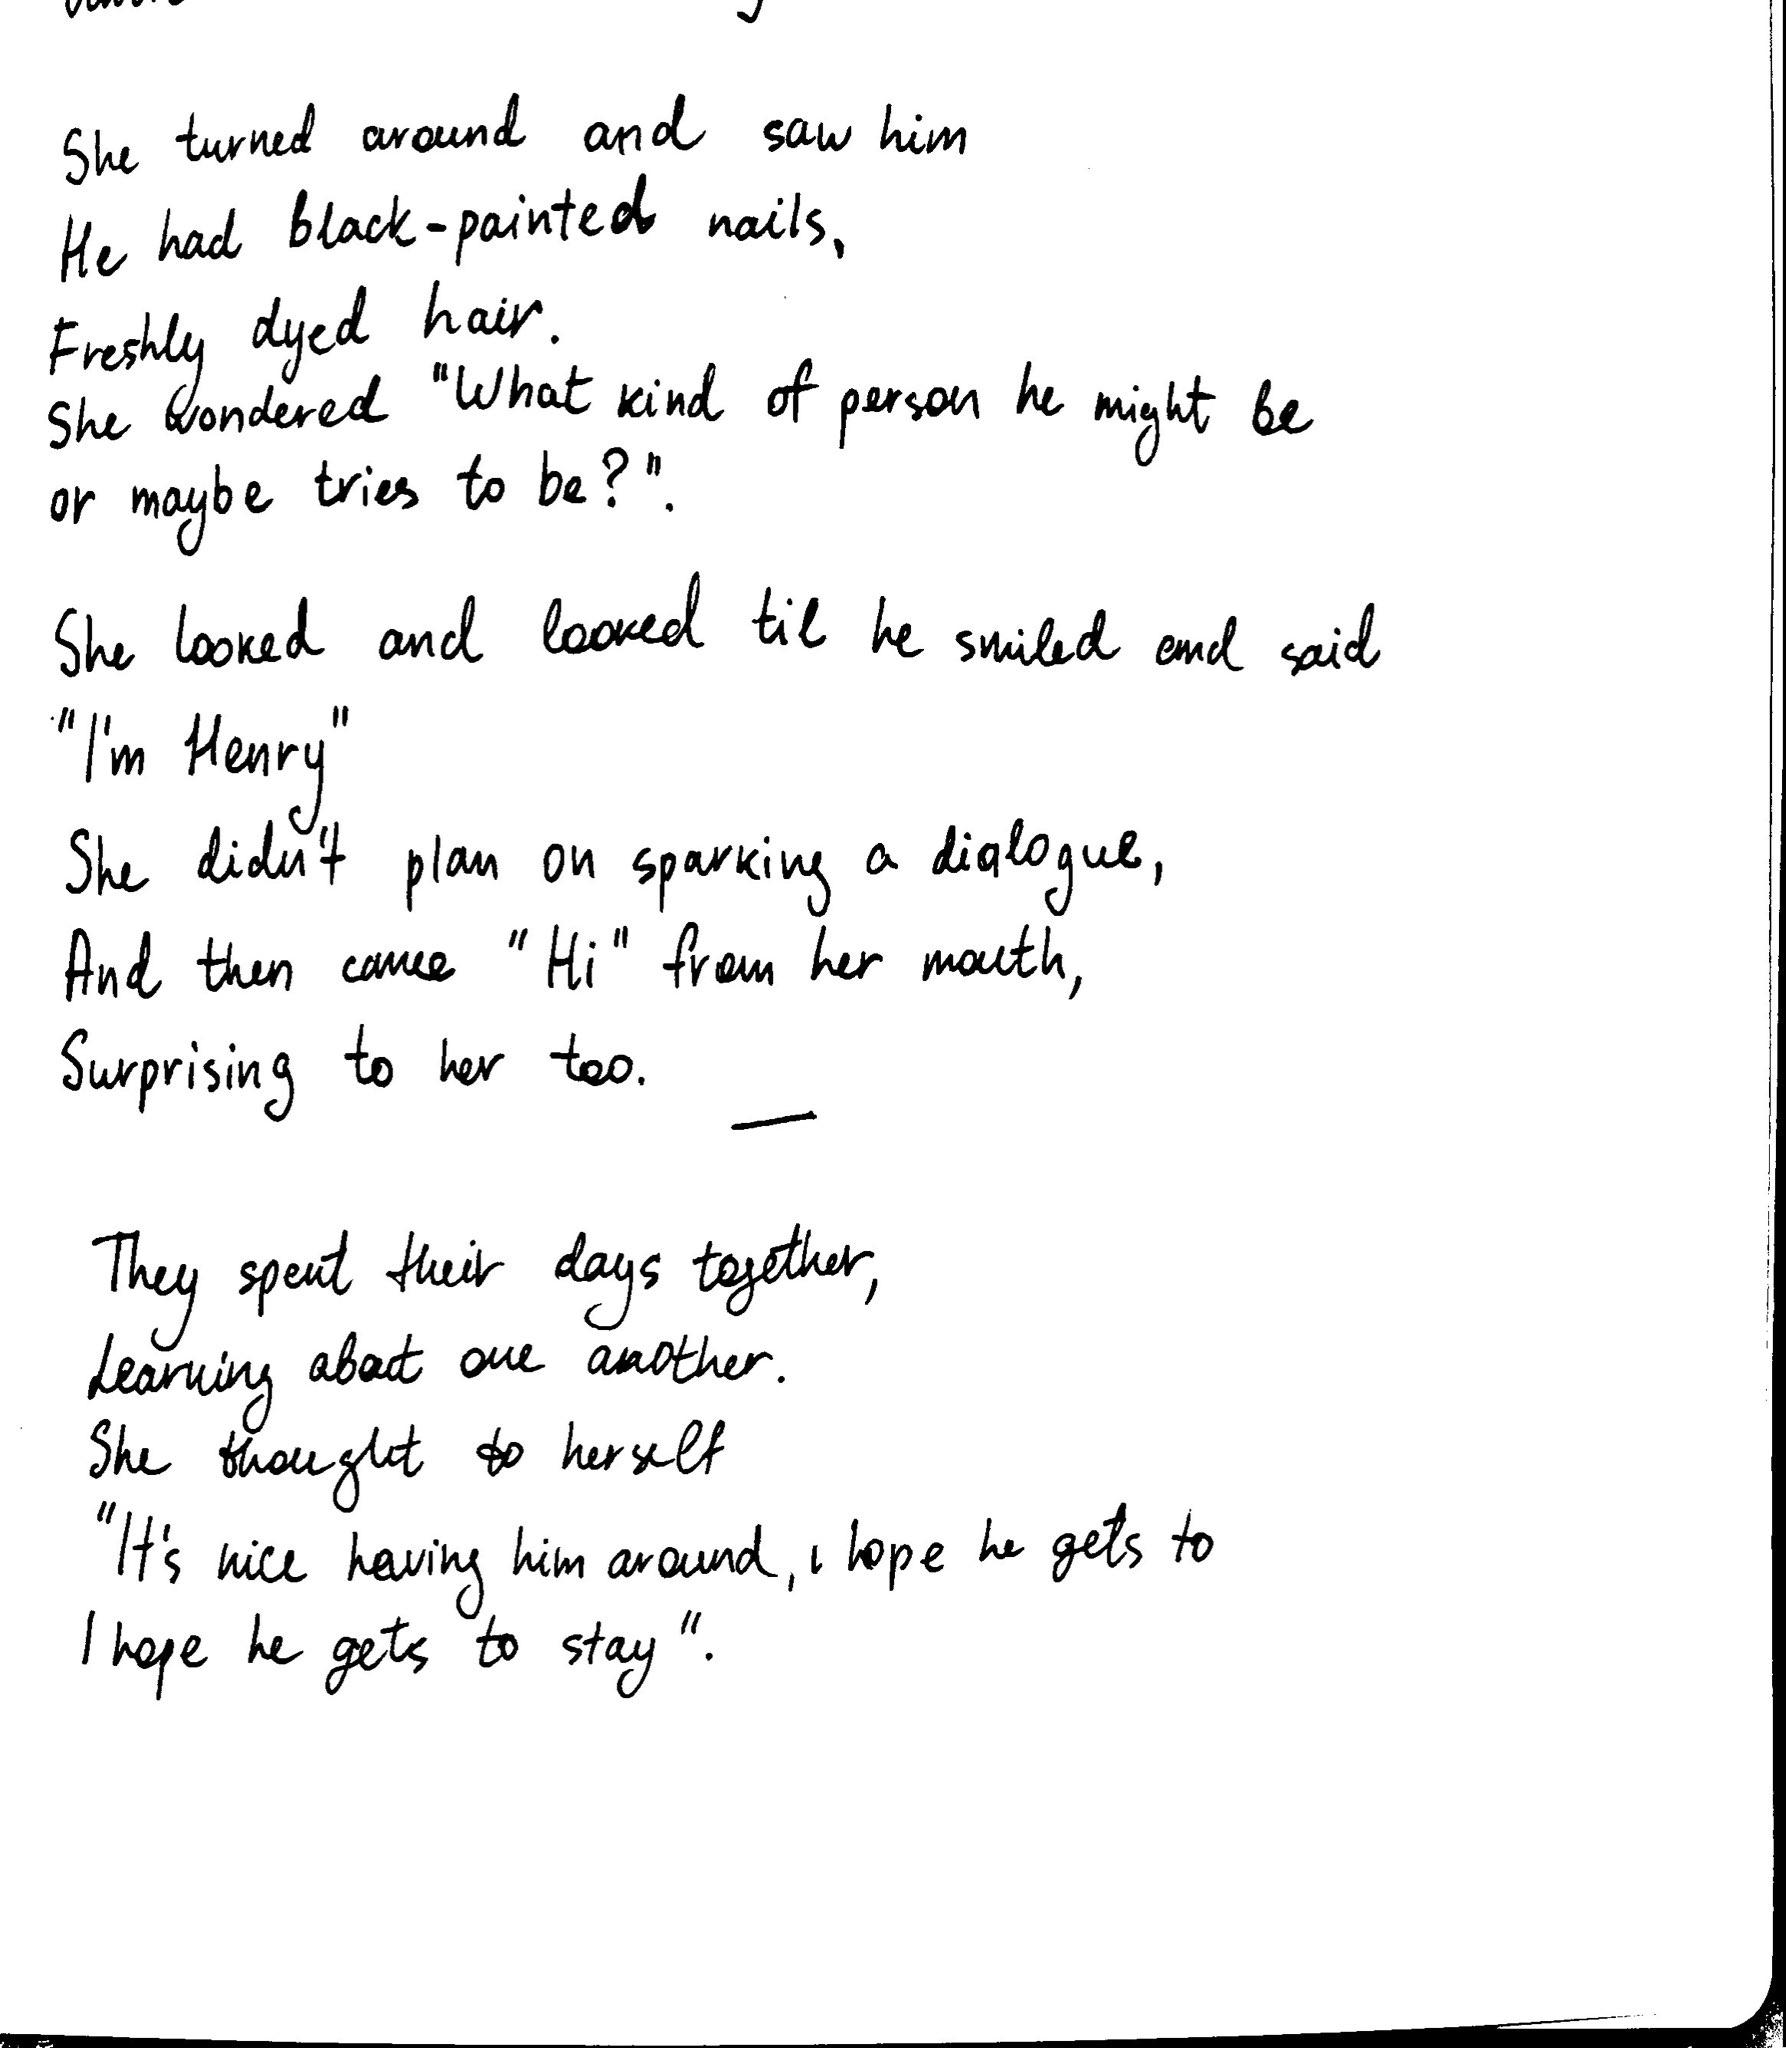 She turned around and saw him
He had black-painted nails,
Freshly dyed hair.
She wondered "What kind of person he might be
or maybe tries to be?".
She looked and looked til he smiled and said
"I'm Henry"
She didn't plan on sparking a dialogue,
And then came "Hi" from her mouth,
Surprising to her too.
—
They spent their days together,
Learning about one another.
She thought to herself
"It's nice having him around, i hope he gets to
I hope he gets to stay".